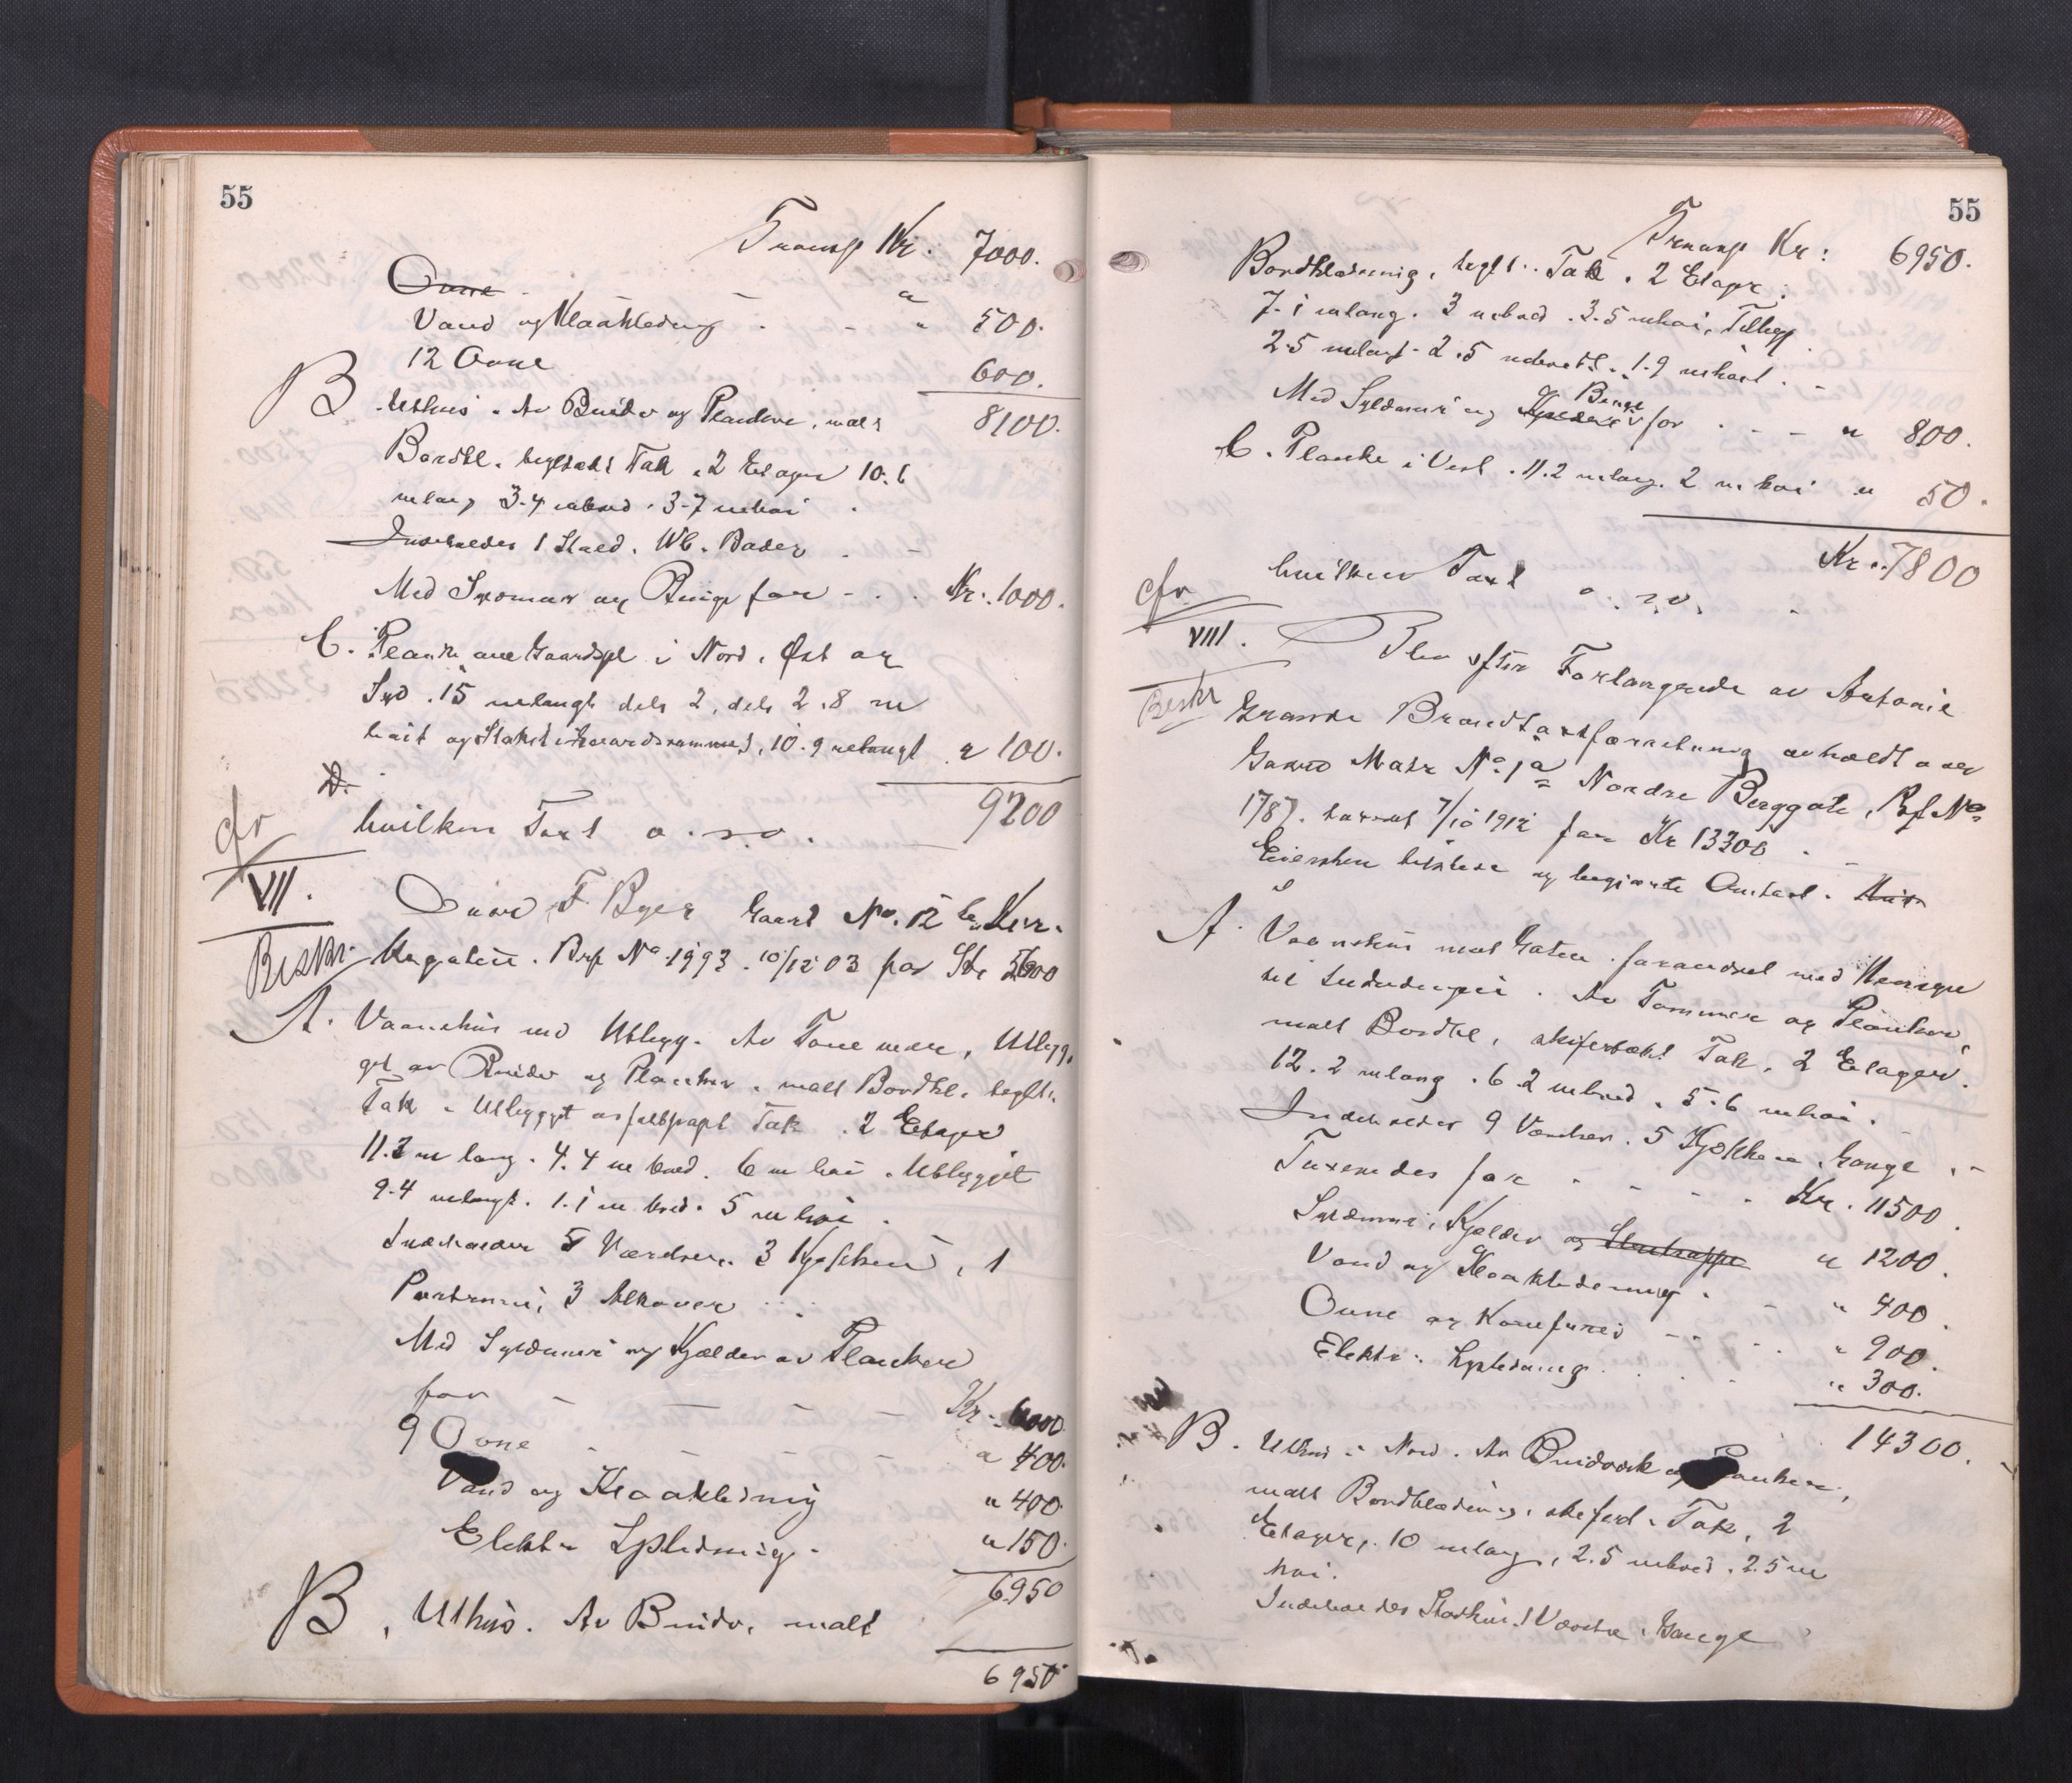 55
Transp Kr: 7000.
Ovne
Vand og Kloakledning . - " 500.
12 Ovne 600.
8100.
B Uthus. Av Bindv og Planker, malt
Bordkl. teglstækt Tak. 2 Etager 10.6
m lang 3.4 m bred. 3.7 m høi.
Indeholder 1 Stald. Wc. Boder . -
Med Svomur og Binge for - . . Kr. 1000.
C. Plank om Gaardspl i Nord, Øst og
Syd. 15 m langt dels 2, dels 2.8 m
høit og Stakit i Gaardsrummet, 10.9 m langt " 100.
D.
hvilken Taxt o.s.v. 9200
cfr
VII. F Byes Gaard No. 12 Kir-
Beskr. kegaten. Brp No 1993. 10/12 03 for Kr
A. Vaanehus med Utbygg. Av Tømmer, Utbyg-
get av Bindv og Planker. malt Bordkl. teglt.
Tak. Utbygget asfaltpapt Tak. 2 Etager
11.2 m lang. 4.4 m bred. 6 m høi. Utbygget
9.4 m langt. 1.1 m bred. 5 m høi.
Indeholder 5 Værelser. 3 Kjøkken, 1
Portrum, 3 Alkover
Med Syldmur og Kjælder av Planker
for - - - - Kr. 6000
9 Ovne - - - - " 400.
Vand og Kloakledning " 400.
Elektr Lysledning. " 150.
6950
B, Uthus. Av Bindv, malt
6950
55
Transp Kr: 6950.
Bordklædning, teglt. Tak. 2 Etager.
7.1 m lang. 3 m bred. 3.5 m høi, Tilbygg
2.5 m langt. 2.5 m bredt. 1.9 m høit. -
Binge
Med Syldmur og Kjælder for . - - - " 800.
C. Planke i Vest. 11.2 m lang. 2 m høi " 50.
Kr. 7800
hvilken Taxt o.s.v.
cfr
VIII. Blev efter Forlangende av Antonie
Beskr Grande Brandtaxtforretning avholdt over
Gaard Matr No 1a Nordre Berggate, Brp No
1787. taxeret 7/10 1912 for Kr 13300. -
Eiersken tilstede og begjærte Omtaxt.
A. Vaanehus mot Gaten. forandret
. Av Tømmer og Planker,
malt Bordkl, skifertækt Tak, 2 Etager.
12.2 m lang. 6.2 m bred. 5.6 m høi.
Indeholder 9 Værelser. 5 Kjøkken. Gange.
Taxeredes for - - - - Kr. 11500.
Syldmur, Kjælder og " 1200.
Vand og Kloakledning. - " 400.
Ovne og Komfurer - . . " 900.
Elektr. Lysledning . . . " 300.
14300.
B. Uthus i Nord. Av Bindværk og Planker,
malt Bordklædning, skiferd. Tak, 2
Etager. 10 m lang, 2.5 m bred. 2.5 m
høi.
Indeholder Stødhus. 1 Værelse. Gange